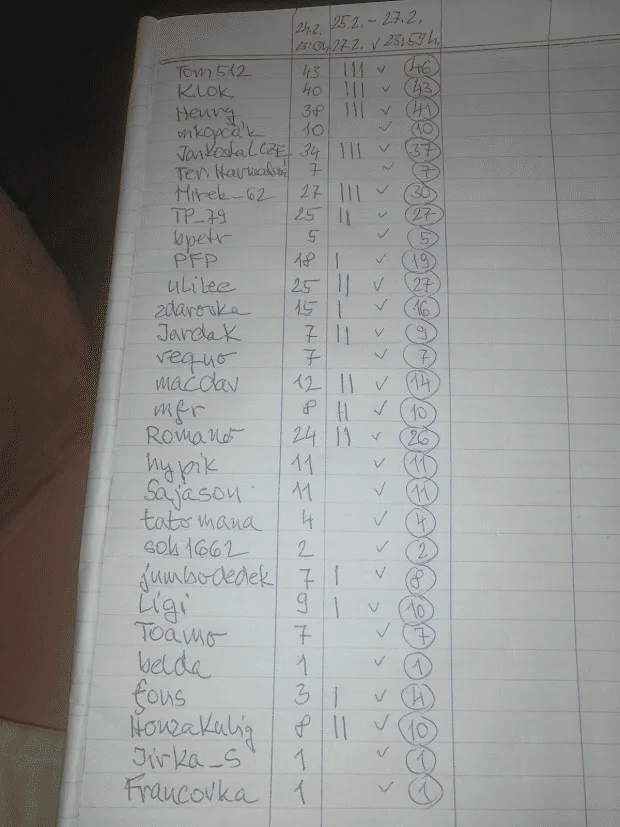 24.2. 25.2. - 27.2.
23:59h. 27.2. ✓ 23:59h.
Tom512 43 III ✓ 46
Klok 40 III ✓ 43
Henry 38 III ✓ 41
mkopčák 10 ✓ 10
JanKostalCZE 34 III ✓ 37
Ten 7 ✓ 7
Mirek_62 27 III ✓ 30
TP_79 25 II ✓ 27
bpetr 5 ✓ 5
PFP 18 I ✓ 19
ulilee 25 II ✓ 27
zdarovka 15 I ✓ 16
Jardak 7 II ✓ 9
requo 7 ✓ 7
macdav 12 II ✓ 14
mfr 8 II ✓ 10
Romano 24 II ✓ 26
hypik 11 ✓ 11
Sajason 11 ✓ 11
tatomana 4 ✓ 4
sob1662 2 ✓ 2
jumbodedek 7 I ✓ 8
Ligi 9 I ✓ 10
Toamo 7 ✓ 7
belda 1 ✓ 1
fous 3 I ✓ 4
HonzaKulig 8 II ✓ 10
Jirka_S 1 ✓ 1
Francovka 1 ✓ 1